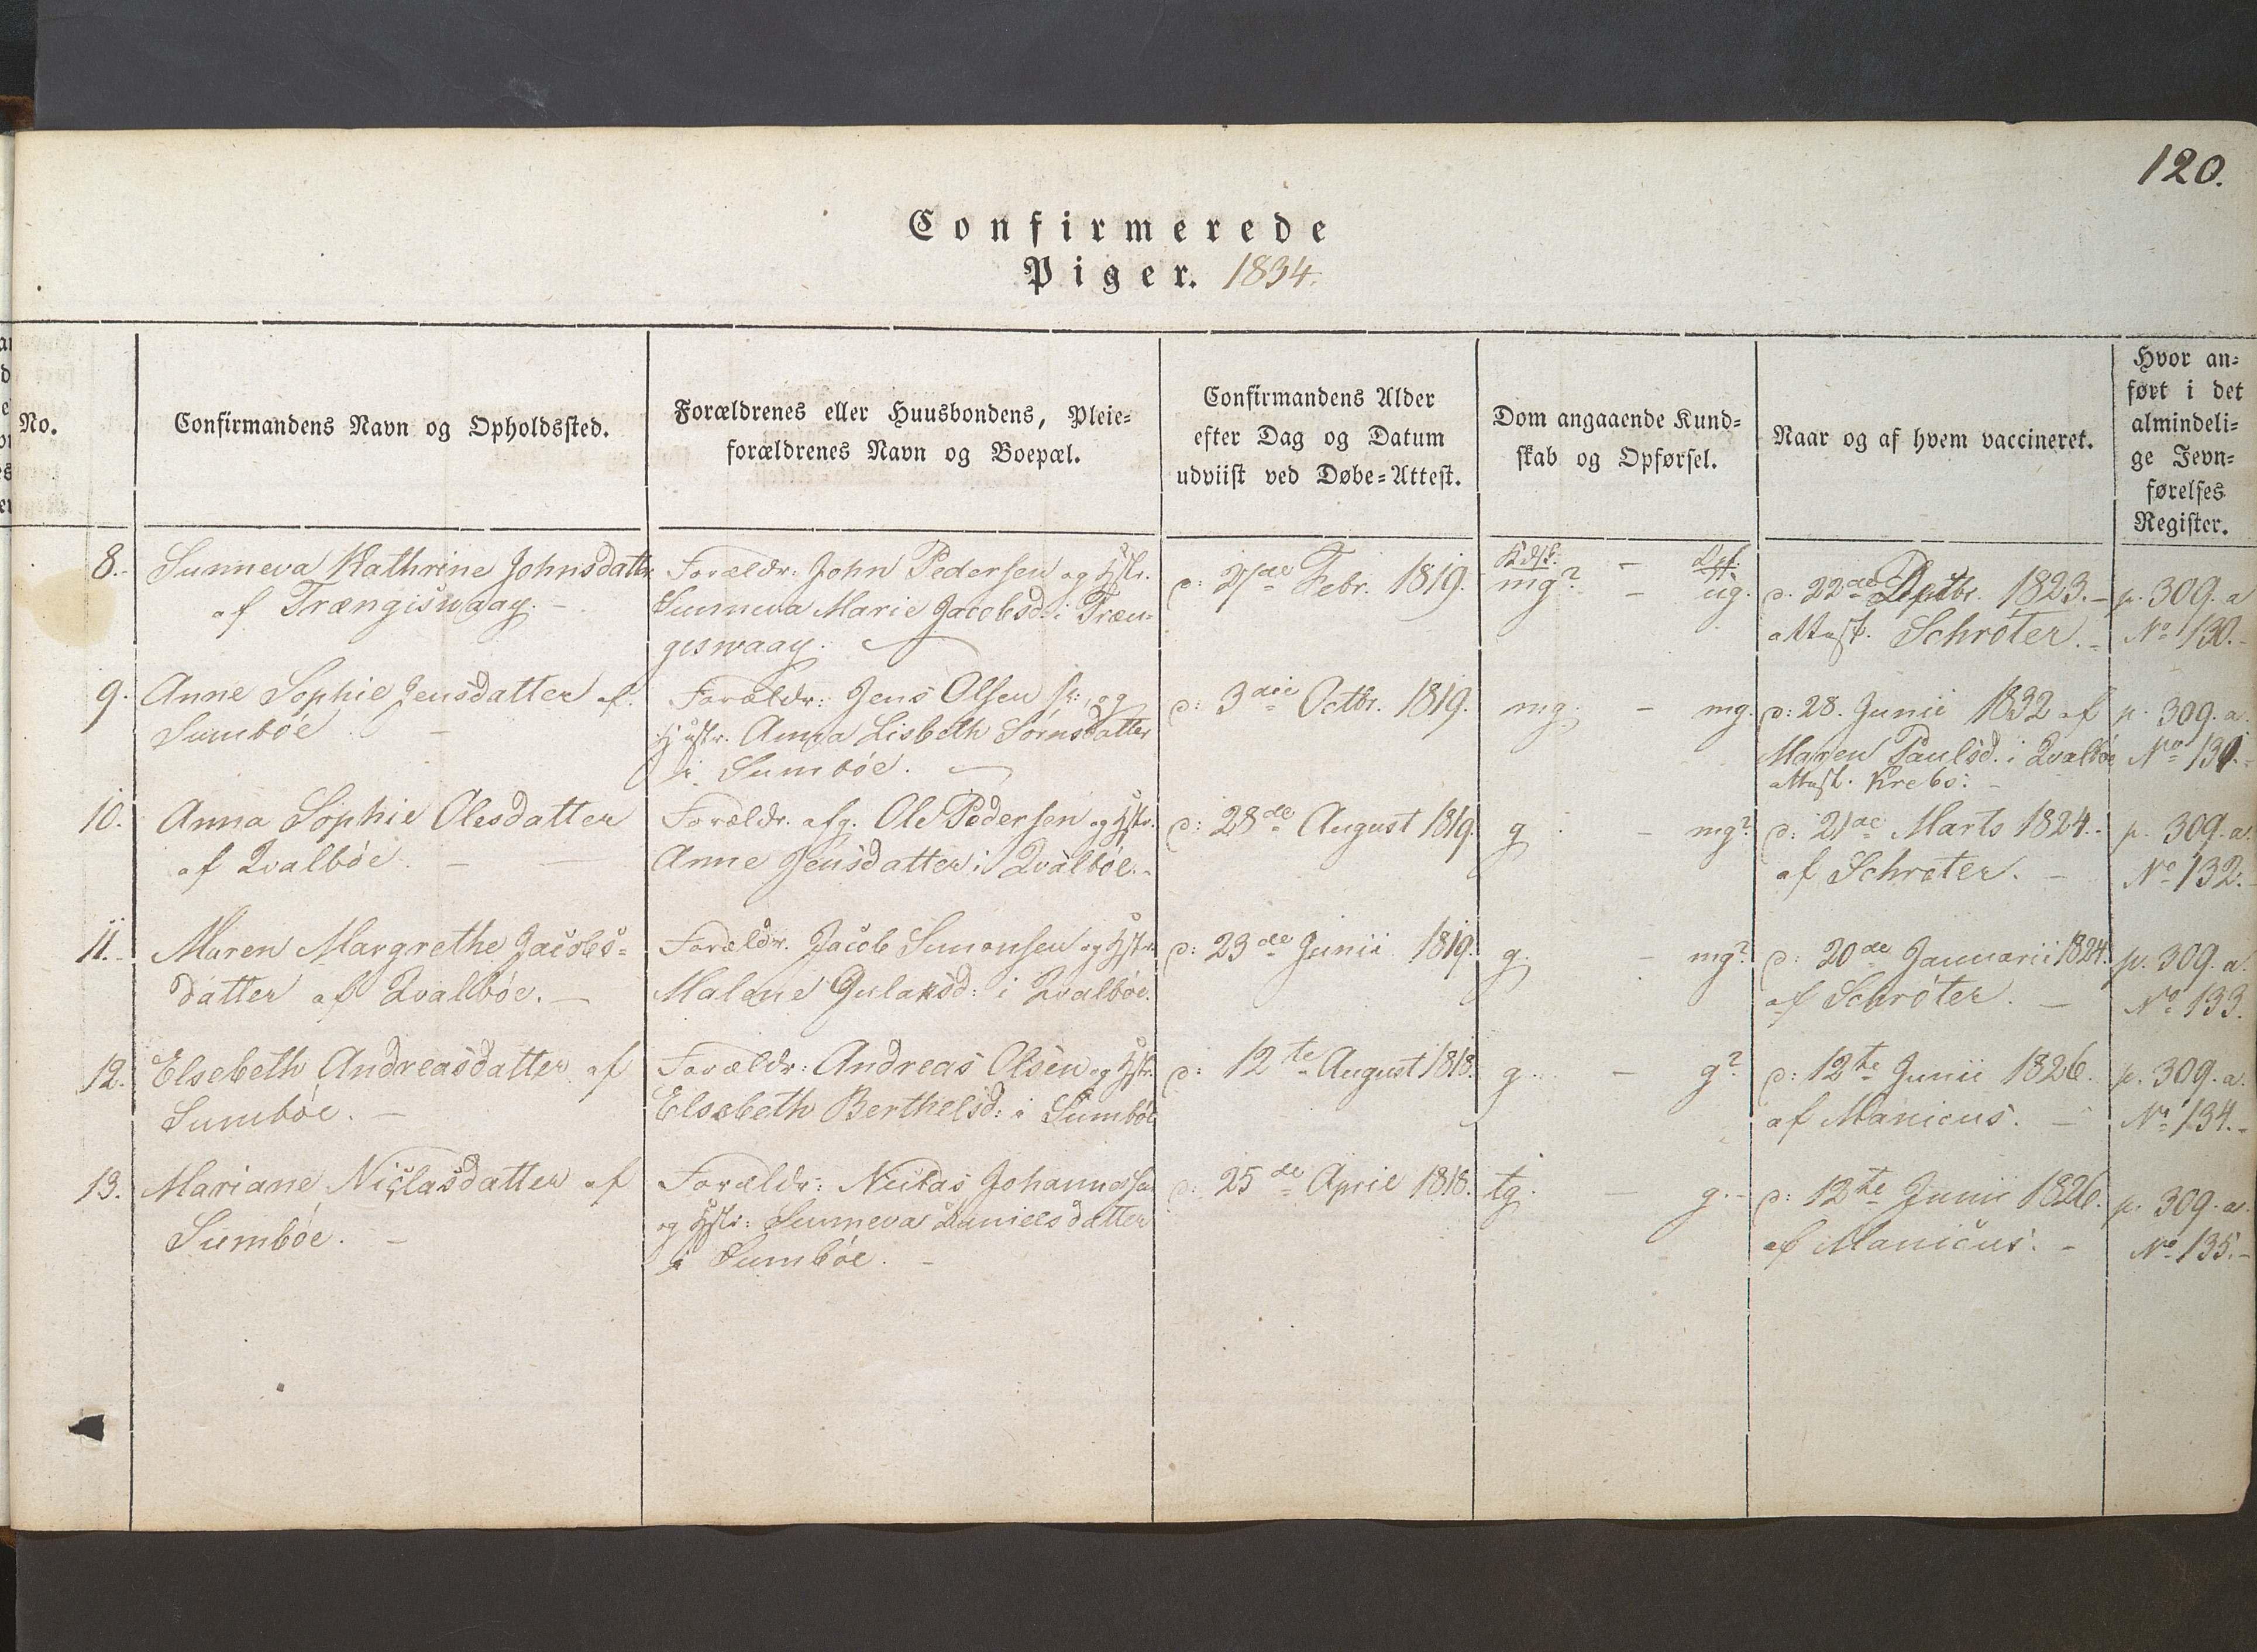 120.
Confirmerede
Piger. 1834.
No.
Confirmandens Navn og Opholdssted.
Forældrenes eller Huusbondens, Pleie=
forældrenes Navn og Boepæl.
Confirmandens Alder
efter Dag og Datum
udviist ved Døbe=Attest.
Dom angaaende Kund=
skab og Opførsel.
Naar og af hvem vaccineret.
Hvor an=
ført i det
almindeli=
ge Jevn=
førelses
Register.
8. Sunneva Kathrine Johnsdatter
af Trængiswaag. -
Forældr: John Pedersen og Hstr.
Sunneva Marie Jacobsd: i Træn-
geswaag.
d: 21de Febr. 1819.
Kdsk. -
mg? - ug.
d. 22de Septbr. 1823. -
attest. Schrøter. -
p. 309. a
No 130. -
9. Anne Sophie Jensdatter af
Sumbøe -
Forældr: Jens Olsen og
Hustr. Anna Lisbeth Sørnsdatter
i Sumbøe. -
d: 3die Octbr. 1819.
mg. - mg.
d: 28. Junii 1832 af
Maren Paulsd. i Qvalbøe
attest. Krebs. -
p. 309. a.
No 131. -
10. Anna Sophie Olesdatter
af Qvalbøe. -
Forældr. afg. Ole Pedersen og Hstr.
Anne Jensdatter i Qvalbøe. -
d: 28de August 1819.
g - mg?
d: 21de Marts 1824. -
af Schrøter. -
p. 309. a.
No 132. -
11. Maren Margrethe Jacobs=
datter af Qvalbøe. -
Forældr. Jacob Simonsen og Hstr.
Malene Gulaksd: i Qvalbøe.
d: 23de Junii 1819.
g. - mg?
d: 20de Januarii 1824.
af Schrøter. -
p. 309. a.
No 133.
12. Elsebeth Andreasdatter af
Sumbøe. -
Forældr: Andreas Olsen og Hstr.
Elsebeth Berthelsd: i Sumbøe
d: 12te August 1818.
g. - g?
d: 12te Junii 1826.
af Manicus. -
p. 309. a.
No 134. -
13. Mariane Niclasdatter af
Sumbøe. -
Forældr: Niclas Johannessen
og Hstr: Sunneva Danielsdatter
i Sumbøe. -
d: 25de April 1818.
tg. - g. -
d: 12te Junii 1826.
af Manicus. -
p. 309. a.
No 135. -